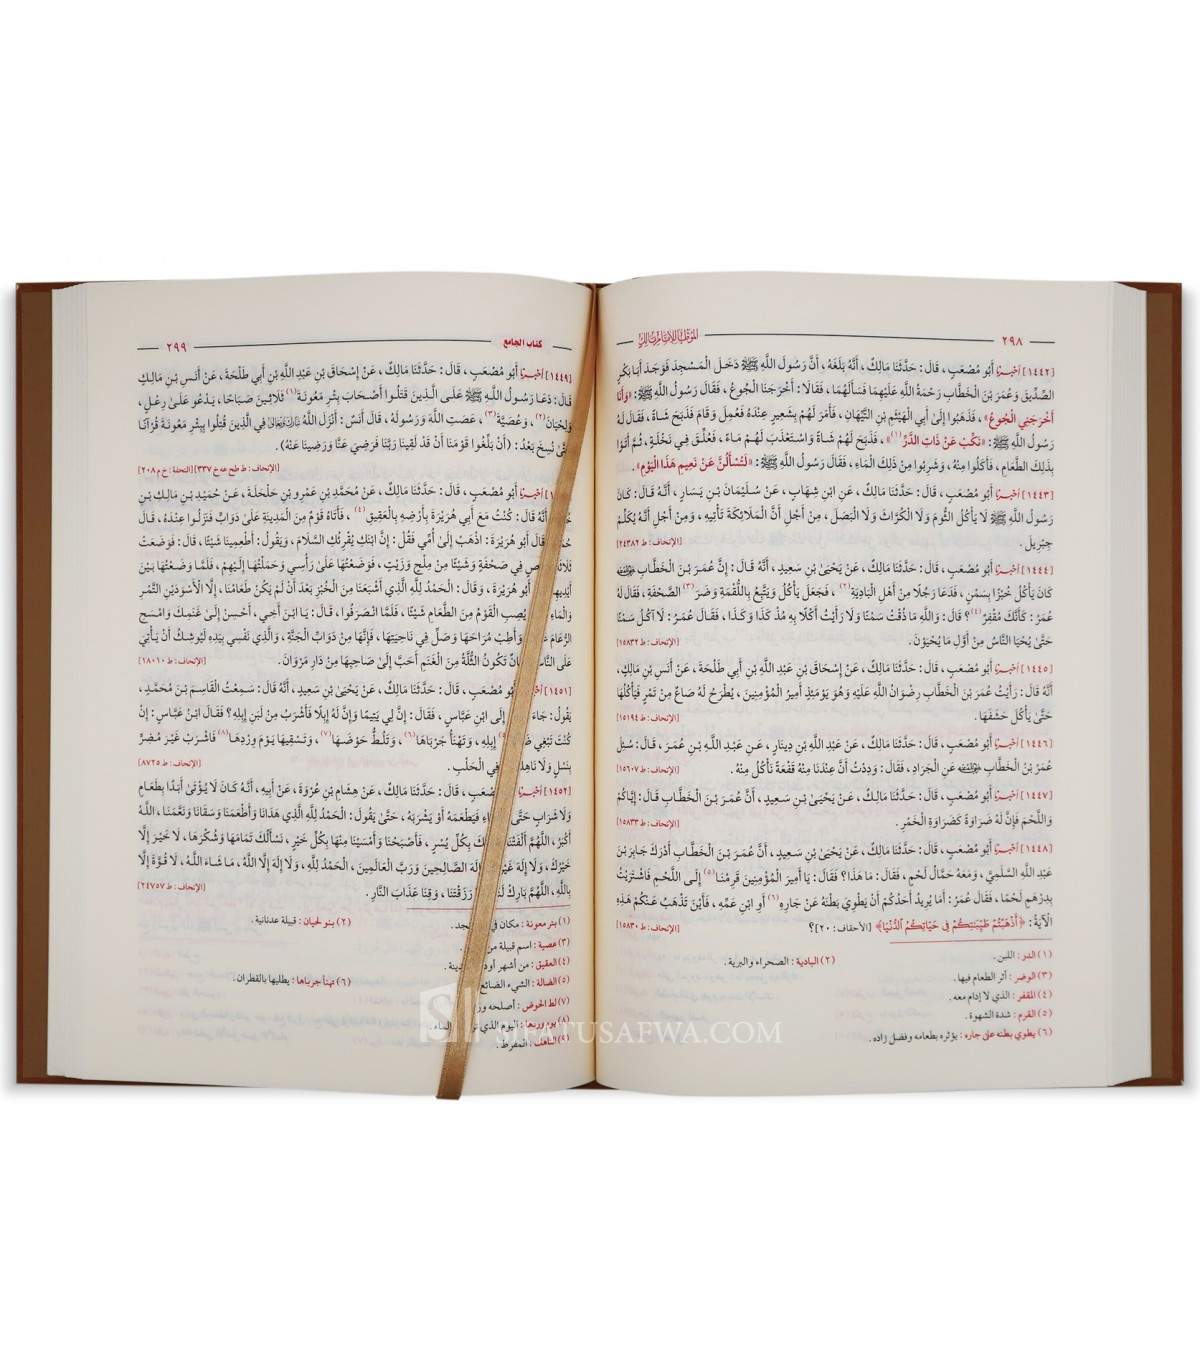 ٢٩٨
الموطأ للإمام مالك
[١٤٤٢] أخبرنا أَبُو مُصْعَبٍ ، قَالَ : حَدَّثَنَا مَالِكٌ ، أَنَّهُ بَلَغَهُ ، أَنَّ رَسُولَ اللَّهِ ﷺ دَخَلَ الْمَسْجِدَ فَوَجَدَ أَبَا بَكْرٍ
الصِّدِّيقَ وَعُمَرَ بْنَ الْخَطَّابِ رَحْمَةُ اللَّهِ عَلَيْهِمَا فَسَأَلَهُمَا ، فَقَالَا : أَخْرَجَنَا الْجُوعُ ، فَقَالَ رَسُولُ اللَّهِ ﷺ : «وَأَنَا
أَخْرَجَنِي الْجُوعُ» ، فَذَهَبُوا إِلَى أَبِي الْهَيْثَمِ بْنِ التَّيِّهَانِ ، فَأَمَرَ لَهُمْ بِشَعِيرٍ عِنْدَهُ فَعُمِلَ وَقَامَ فَذَبَحَ شَاةً ، فَقَالَ لَهُ
رَسُولُ اللَّهِ ﷺ : «نَكِّبْ عَنْ ذَاتِ الدَّرِّ(١)» ، فَذَبَحَ لَهُمْ شَاةً وَاسْتَعْذَبَ لَهُمْ مَاءً ، فَعُلِّقَ فِي نَخْلَةٍ ، ثُمَّ أُتُوا
بِذَلِكَ الطَّعَامِ ، فَأَكَلُوا مِنْهُ ، وَشَرِبُوا مِنْ ذَلِكَ الْمَاءِ ، فَقَالَ رَسُولُ اللَّهِ ﷺ : «لَتُسْأَلُنَّ عَنْ نَعِيمِ هَذَا الْيَوْمِ» .
[١٤٤٣] أخبرنا أَبُو مُصْعَبٍ ، قَالَ : حَدَّثَنَا مَالِكٌ ، عَنِ ابْنِ شِهَابٍ ، عَنْ سُلَيْمَانَ بْنِ يَسَارٍ ، أَنَّهُ قَالَ : كَانَ
رَسُولُ اللَّهِ ﷺ لَا يَأْكُلُ الثُّومَ وَلَا الْكُرَّاثَ وَلَا الْبَصَلَ ، مِنْ أَجْلِ أَنَّ الْمَلَائِكَةَ تَأْتِيهِ ، وَمِنْ أَجْلِ أَنَّهُ يُكَلِّمُ
جِبْرِيلَ . [الإتحاف : ط ٢٤٣٨٢]
[١٤٤٤] أخبرنا أَبُو مُصْعَبٍ ، قَالَ : حَدَّثَنَا مَالِكٌ ، عَنْ يَحْيَى بْنِ سَعِيدٍ ، أَنَّهُ قَالَ : إِنَّ عُمَرَ بْنَ الْخَطَّابِ
كَانَ يَأْكُلُ خُبْزًا بِسَمْنٍ ، فَدَعَا رَجُلًا مِنْ أَهْلِ الْبَادِيَةِ(٢) ، فَجَعَلَ يَأْكُلُ وَيَتَّبِعُ بِاللُّقْمَةِ وَضَرَ(٣) الصَّحْفَةِ ، فَقَالَ لَهُ
عُمَرُ : كَأَنَّكَ مُقْفِرٌ(٤)؟ قَالَ : وَاللَّهِ مَا ذُقْتُ سَمْنًا وَلَا رَأَيْتُ أَكْلًا بِهِ مُنْذُ كَذَا وَكَذَا ، فَقَالَ عُمَرُ : لَا آكُلُ سَمْنًا
حَتَّى يُحْيَا النَّاسُ مِنْ أَوَّلِ مَا يُحْيَوْنَ . [الإتحاف : ط ١٥٨٣٢]
[١٤٤٥] أخبرنا أَبُو مُصْعَبٍ ، قَالَ : حَدَّثَنَا مَالِكٌ ، عَنْ إِسْحَاقَ بْنِ عَبْدِ اللَّهِ بْنِ أَبِي طَلْحَةَ ، عَنْ أَنَسِ بْنِ مَالِكٍ ،
أَنَّهُ قَالَ : رَأَيْتُ عُمَرَ بْنَ الْخَطَّابِ رِضْوَانُ اللَّهِ عَلَيْهِ وَهُوَ يَوْمَئِذٍ أَمِيرُ الْمُؤْمِنِينَ ، يُطْرَحُ لَهُ صَاعٌ مِنْ تَمْرٍ فَيَأْكُلُهَا
حَتَّى يَأْكُلَ حَشَفَهَا . [الإتحاف : ط ١٥١٩٤]
[١٤٤٦] أخبرنا أَبُو مُصْعَبٍ ، قَالَ : حَدَّثَنَا مَالِكٌ ، عَنْ عَبْدِ اللَّهِ بْنِ دِينَارٍ ، عَنْ عَبْدِ اللَّهِ بْنِ عُمَرَ ، قَالَ : سُئِلَ
عُمَرُ بْنُ الْخَطَّابِ عَنِ الْجَرَادِ ، فَقَالَ : وَدِدْتُ أَنَّ عِنْدَنَا مِنْهُ قَفْعَةً نَأْكُلُ مِنْهُ . [الإتحاف : ط ١٥٦٠٧]
[١٤٤٧] أخبرنا أَبُو مُصْعَبٍ ، قَالَ : حَدَّثَنَا مَالِكٌ ، عَنْ يَحْيَى بْنِ سَعِيدٍ ، أَنَّ عُمَرَ بْنَ الْخَطَّابِ قَالَ : إِيَّاكُمْ
وَاللَّحْمَ فَإِنَّ لَهُ ضَرَاوَةً كَضَرَاوَةِ الْخَمْرِ . [الإتحاف : ط ١٥٨٣٣]
[١٤٤٨] أخبرنا أَبُو مُصْعَبٍ ، قَالَ : حَدَّثَنَا مَالِكٌ ، عَنْ يَحْيَى بْنِ سَعِيدٍ ، أَنَّ عُمَرَ بْنَ الْخَطَّابِ أَدْرَكَ جَابِرَ بْنَ
عَبْدِ اللَّهِ السَّلَمِيَّ ، وَمَعَهُ حَمَّالُ لَحْمٍ ، فَقَالَ : مَا هَذَا؟ فَقَالَ : يَا أَمِيرَ الْمُؤْمِنِينَ قَرِمْنَا(٥) إِلَى اللَّحْمِ فَاشْتَرَيْتُ
بِدِرْهَمٍ لَحْمًا ، فَقَالَ عُمَرُ : أَمَا يُرِيدُ أَحَدُكُمْ أَنْ يَطْوِيَ بَطْنَهُ عَنْ جَارِهِ(٦) أَوِ ابْنِ عَمِّهِ ، فَأَيْنَ تَذْهَبُ عَنْكُمْ هَذِهِ
الْآيَةُ : ﴿أَذْهَبْتُمْ طَيِّبَاتِكُمْ فِي حَيَاتِكُمُ الدُّنْيَا﴾ [الأحقاف : ٢٠]؟ [الإتحاف : ط ١٥٨٣٠]
(١) الدر : اللبن . (٢) البادية : الصحراء والبرية .
(٣) الوضر : أثر الطعام فيها .
(٤) المقفر : الذي لا إدام معه .
(٥) القرم : شدة الشهوة .
(٦) يطوي بطنه على جاره : يؤثره بطعامه وفضل زاده .
كتاب الجامع
٢٩٩
[١٤٤٩] أخبرنا أَبُو مُصْعَبٍ ، قَالَ : حَدَّثَنَا مَالِكٌ ، عَنْ إِسْحَاقَ بْنِ عَبْدِ اللَّهِ بْنِ أَبِي طَلْحَةَ ، عَنْ أَنَسِ بْنِ مَالِكٍ
قَالَ : دَعَا رَسُولُ اللَّهِ ﷺ عَلَى الَّذِينَ قَتَلُوا أَصْحَابَ بِئْرِ مَعُونَةَ(١) ثَلَاثِينَ صَبَاحًا ، يَدْعُو عَلَى رِعْلٍ ،
وَلِحْيَانَ(٢) ، وَعُصَيَّةَ(٣) ، عَصَتِ اللَّهَ وَرَسُولَهُ ، قَالَ أَنَسٌ : أَنْزَلَ اللَّهُ فِي الَّذِينَ قُتِلُوا بِبِئْرِ مَعُونَةَ قُرْآنًا
نُسِخَ بَعْدُ : (أَنْ بَلِّغُوا قَوْمَنَا أَنْ قَدْ لَقِينَا رَبَّنَا فَرَضِيَ عَنَّا وَرَضِينَا عَنْهُ) .
[الإتحاف : ط طح عه خ ٣٣٧] [التحفة : خ م ٢٠٨]
أَبُو مُصْعَبٍ ، قَالَ : حَدَّثَنَا مَالِكٌ ، عَنْ مُحَمَّدِ بْنِ عَمْرِو بْنِ حَلْحَلَةَ ، عَنْ حُمَيْدِ بْنِ مَالِكِ بْنِ
أَنَّهُ قَالَ : كُنْتُ مَعَ أَبِي هُرَيْرَةَ بِأَرْضِهِ بِالْعَقِيقِ(٤) ، فَأَتَاهُ قَوْمٌ مِنَ الْمَدِينَةِ عَلَى دَوَابَّ فَنَزَلُوا عِنْدَهُ ، قَالَ
قَالَ أَبُو هُرَيْرَةَ : اذْهَبْ إِلَى أُمِّي فَقُلْ : إِنَّ ابْنَكِ يُقْرِئُكِ السَّلَامَ ، وَيَقُولُ : أَطْعِمِينَا شَيْئًا ، قَالَ : فَوَضَعَتْ
فِي صَحْفَةٍ وَشَيْئًا مِنْ مِلْحٍ وَزَيْتٍ ، فَوَضَعْتُهَا عَلَى رَأْسِي وَحَمَلْتُهَا إِلَيْهِمْ ، فَلَمَّا وَضَعْتُهَا بَيْنَ
أَبُو هُرَيْرَةَ ، وَقَالَ : الْحَمْدُ لِلَّهِ الَّذِي أَشْبَعَنَا مِنَ الْخُبْزِ بَعْدَ أَنْ لَمْ يَكُنْ طَعَامُنَا ، إِلَّا الْأَسْوَدَيْنِ التَّمْرَ
وَالْمَاءَ يُصِبِ الْقَوْمُ مِنَ الطَّعَامِ شَيْئًا ، فَلَمَّا انْصَرَفُوا ، قَالَ : يَا ابْنَ أَخِي ، أَحْسِنْ إِلَى غَنَمِكَ وَامْسَحِ
الرُّعَامَ وَأَطِبْ مُرَاحَهَا وَصَلِّ فِي نَاحِيَتِهَا ، فَإِنَّهَا مِنْ دَوَابِّ الْجَنَّةِ ، وَالَّذِي نَفْسِي بِيَدِهِ لَيُوشِكُ أَنْ يَأْتِيَ
عَلَى النَّاسِ تَكُونُ الثُّلَّةُ مِنَ الْغَنَمِ أَحَبَّ إِلَى صَاحِبِهَا مِنْ دَارِ مَرْوَانَ . [الإتحاف : ط ١٨٠١٠]
[١٤٥١] أَبُو مُصْعَبٍ ، قَالَ : حَدَّثَنَا مَالِكٌ ، عَنْ يَحْيَى بْنِ سَعِيدٍ ، أَنَّهُ قَالَ : سَمِعْتُ الْقَاسِمَ بْنَ مُحَمَّدٍ ،
يَقُولُ : جَاءَ إِلَى ابْنِ عَبَّاسٍ ، فَقَالَ : إِنَّ لِي يَتِيمًا وَإِنَّ لَهُ إِبِلًا فَأَشْرَبُ مِنْ لَبَنِ إِبِلِهِ؟ فَقَالَ ابْنُ عَبَّاسٍ : إِنْ
كُنْتَ تَبْغِي إِبِلِهِ ، وَتَهْنَأُ جَرْبَاهَا(٦) ، وَتَلُطُّ حَوْضَهَا(٧) ، وَتَسْقِيهَا يَوْمَ وِرْدِهَا(٨) فَاشْرَبْ غَيْرَ مُضِرٍّ
بِنَسْلٍ وَلَا نَاهِكٍ فِي الْحَلْبِ . [الإتحاف : ط ٨٧٢٥]
[١٤٥٢] مُصْعَبٍ ، قَالَ : حَدَّثَنَا مَالِكٌ ، عَنْ هِشَامِ بْنِ عُرْوَةَ ، عَنْ أَبِيهِ ، أَنَّهُ كَانَ لَا يُؤْتَى أَبَدًا بِطَعَامٍ
وَلَا شَرَابٍ حَتَّى فَيَطْعَمَهُ أَوْ يَشْرَبَهُ ، حَتَّى يَقُولَ : الْحَمْدُ لِلَّهِ الَّذِي هَدَانَا وَأَطْعَمَنَا وَسَقَانَا وَنَعَّمَنَا ، اللَّهُ
أَكْبَرُ ، اللَّهُمَّ أَلْفَتْنَا بِكُلِّ يُسْرٍ ، فَأَصْبَحْنَا وَأَمْسَيْنَا مِنْهَا بِكُلِّ خَيْرٍ ، نَسْأَلُكَ تَمَامَهَا وَشُكْرَهَا ، لَا خَيْرَ إِلَّا
خَيْرُكَ ، وَلَا إِلَهَ إِلَهَ الصَّالِحِينَ وَرَبَّ الْعَالَمِينَ ، الْحَمْدُ لِلَّهِ ، وَلَا إِلَهَ إِلَّا اللَّهُ ، مَا شَاءَ اللَّهُ ، لَا قُوَّةَ إِلَّا
بِاللَّهِ ، اللَّهُمَّ بَارِكْ رَزَقْتَنَا ، وَقِنَا عَذَابَ النَّارِ . [الإتحاف : ط ٢٤٧٥٧]
(١) بئر معونة : مكان في (٢) بنو لحيان : قبيلة عدنانية .
(٣) عصية : اسم قبيلة من
(٤) العقيق : من أشهر
(٥) الضالة : الشيء الضائع (٦) تهنأ جرباها : يطليها بالقطران .
(٧) لط الحوض : أصلحه
(٨) يوم وردها : اليوم الذي الماء .
(٩) الناهك : المفرط .
SIFATUSAFWA.COM